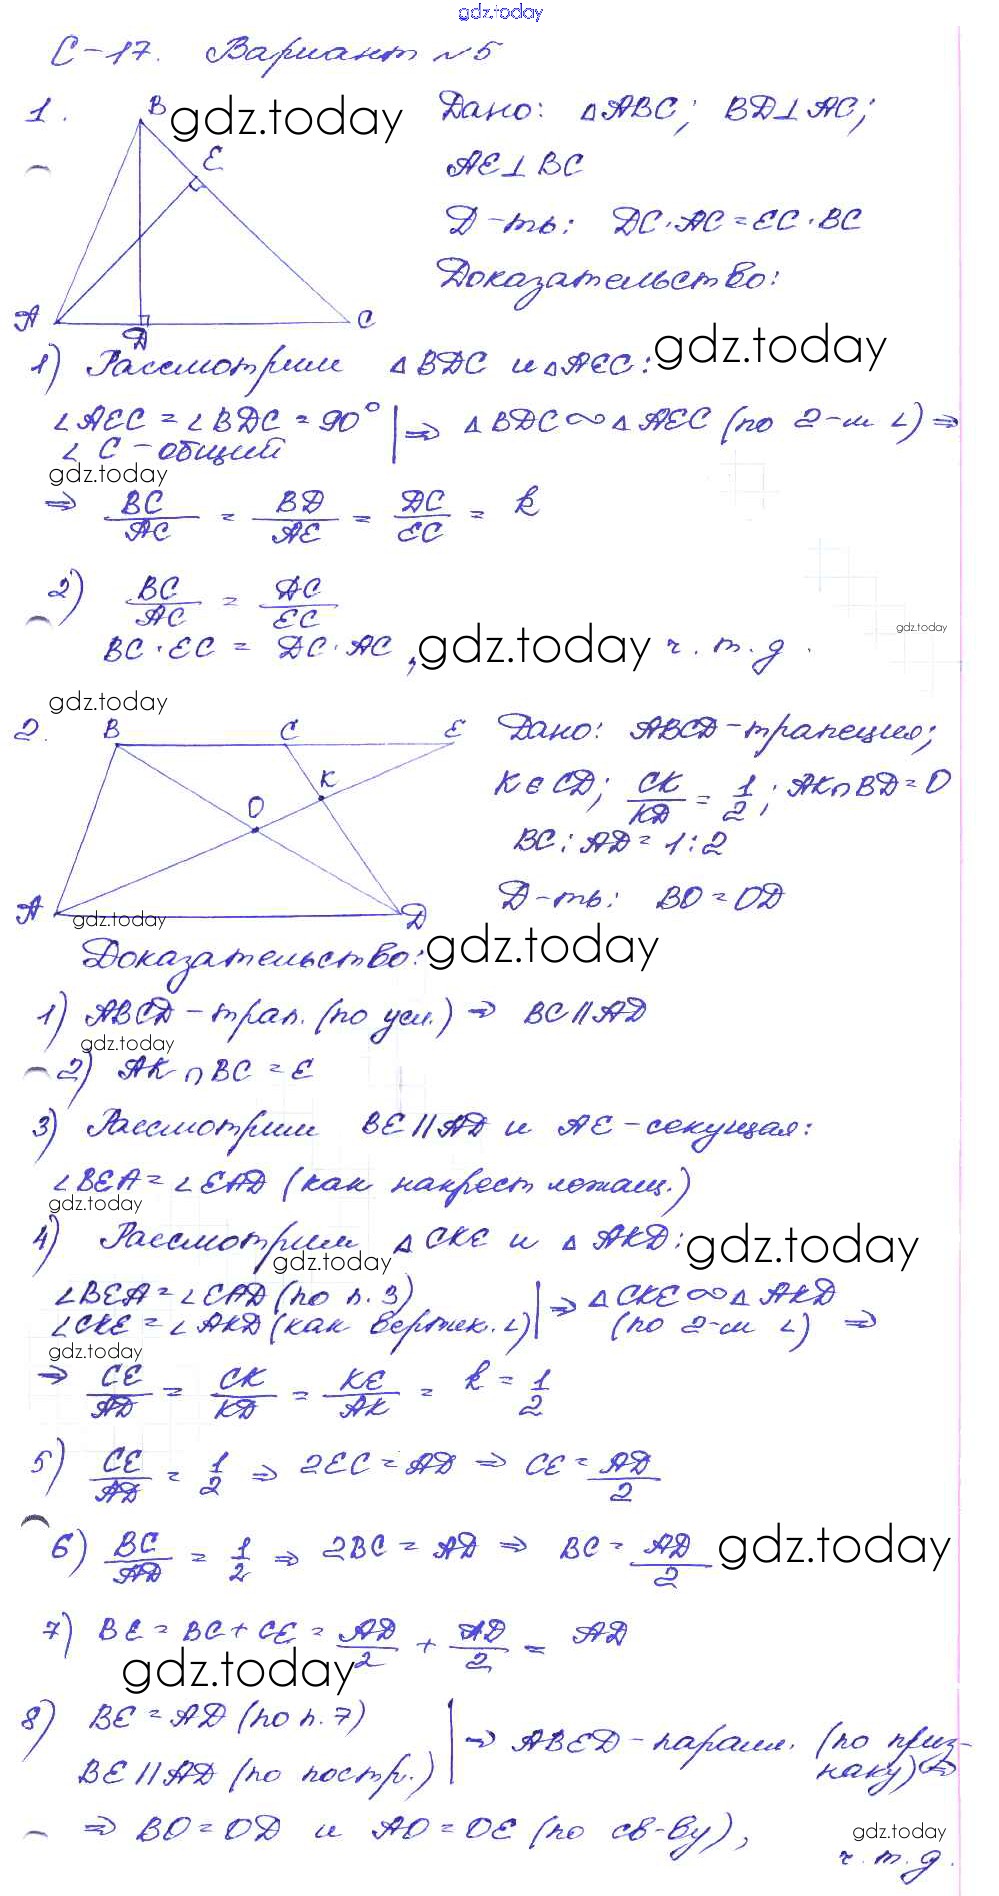 gdz.today
С-17. Вариант №5
1.
B
E
A
D
C
gdz.today
Дано: △ABC; BD⊥AC;
AE⊥BC
Д-ть: DC·AC=EC·BC
Доказательство:
1) Рассмотрим △BDC и △AEC:
gdz.today
∠AEC = ∠BDC = 90° | ⇒ △BDC ∞ △AEC (по 2-м ∠) ⇒
∠C - общий
gdz.today
⇒ BC/AC = BD/AE = DC/EC = k
2) BC/AC = DC/EC
gdz.today
BC·EC = DC·AC, ч.т.д.
gdz.today
gdz.today
2.
B C E
K
O
A D
gdz.today
Дано: ABCD-трапеция;
K∈CD; CK/KD = 1/2; AK∩BD=O
BC:AD=1:2
Д-ть: BO=OD
Доказательство:
gdz.today
1) ABCD-трап. (по усл.) ⇒ BC||AD
gdz.today
2) AK∩BC=E
3) Рассмотрим BE||AD и AE-секущая:
∠BEA=∠EAD (как накрест лежащ.)
gdz.today
4) Рассмотрим △CKE и △AKD:
gdz.today
gdz.today
∠BEA=∠EAD (по п.3) | ⇒ △CKE ∞ △AKD
∠CKE=∠AKD (как вертик. ∠) (по 2-м ∠) ⇒
gdz.today
⇒ CE/AD = CK/KD = KE/AK = k = 1/2
5) CE/AD = 1/2 ⇒ 2EC=AD ⇒ CE=AD/2
6) BC/AD = 1/2 ⇒ 2BC=AD ⇒ BC=AD/2
gdz.today
7) BE=BC+CE=AD/2+AD/2=AD
gdz.today
8) BE=AD (по п.7) | ⇒ ABED-паралл. (по приз-
BE||AD (по постр.) наку) ⇒
⇒ BO=OD и AO=OE (по св-ву),
gdz.today
ч.т.д.